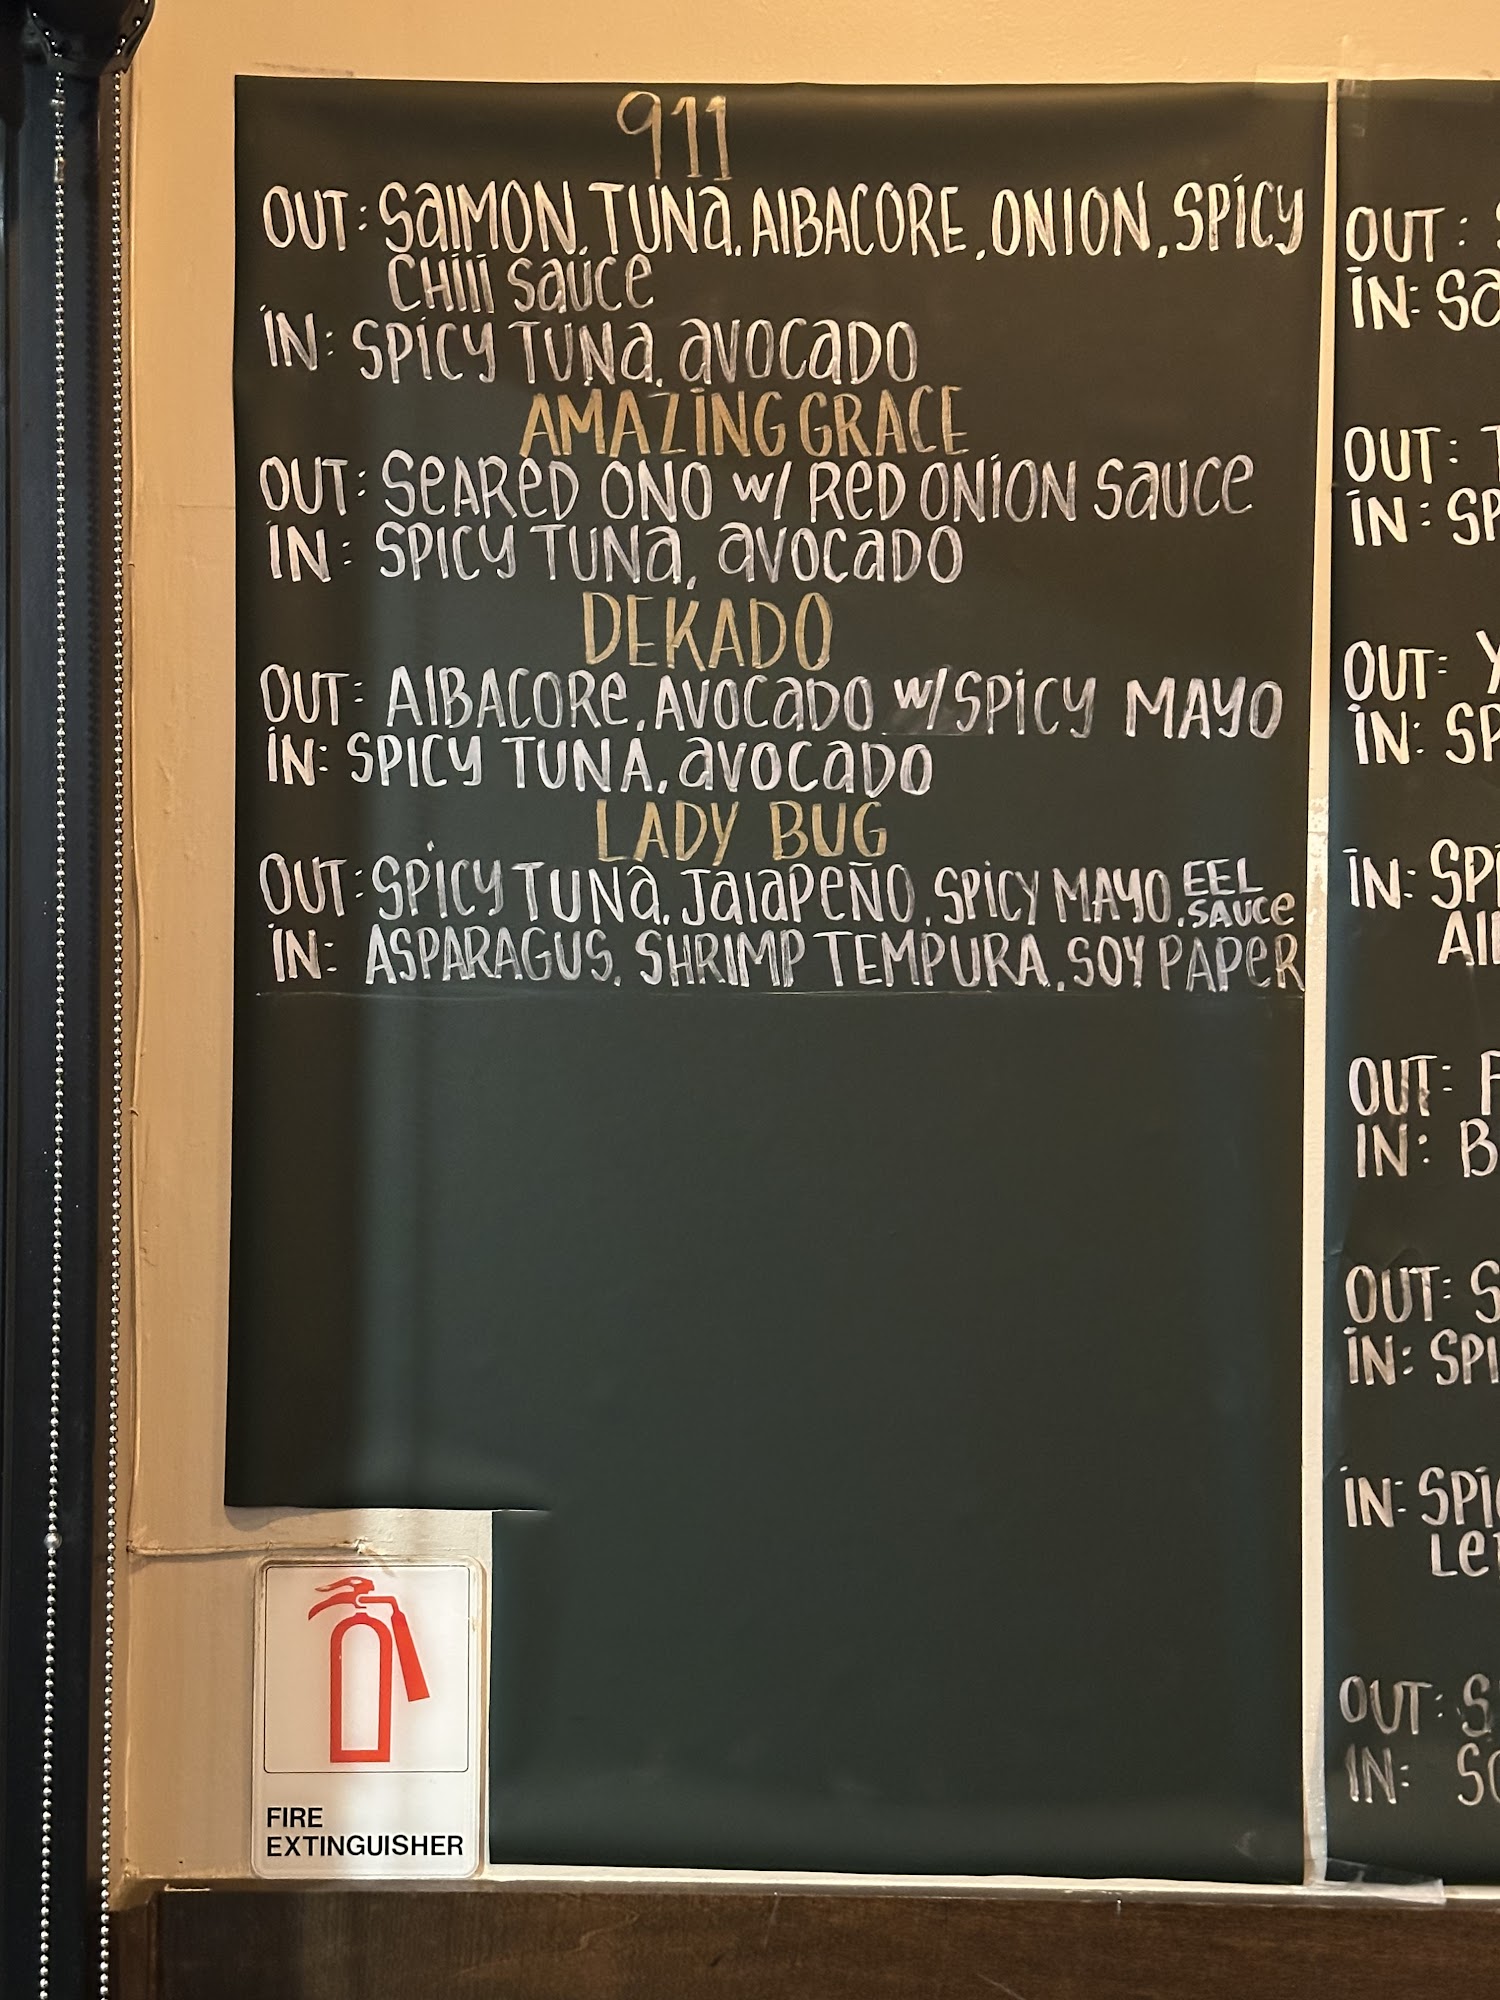 911
OUT: SalMON, TUNa, AlBACORE, ONION, SPiCY
CHili Sauce
iN: SPiCY TUNa, avocaDO
AMAZiNG GRACE
OUT: SeAReD ONO w/ ReD ONiON Sauce
iN: SPICY TUNa, avocaDO
DEKADO
OUT: AlBACORe, AVOcaDO w/ SPiCY MAYO
iN: SPICY TUNA, avocaDO
LADY BUG
OUT: SPiCY TUNa, JalaPeÑO, SPiCY MAYO, EEL
SAUCe
iN: ASPARAGUS, SHRIMP TEMPURA, SOY PAPeR
OUT:
iN:
OUT:
iN:
OUT:
iN:
iN:
OUT:
IN:
OUT:
iN:
iN:
OUT:
IN:
FIRE
EXTINGUISHER